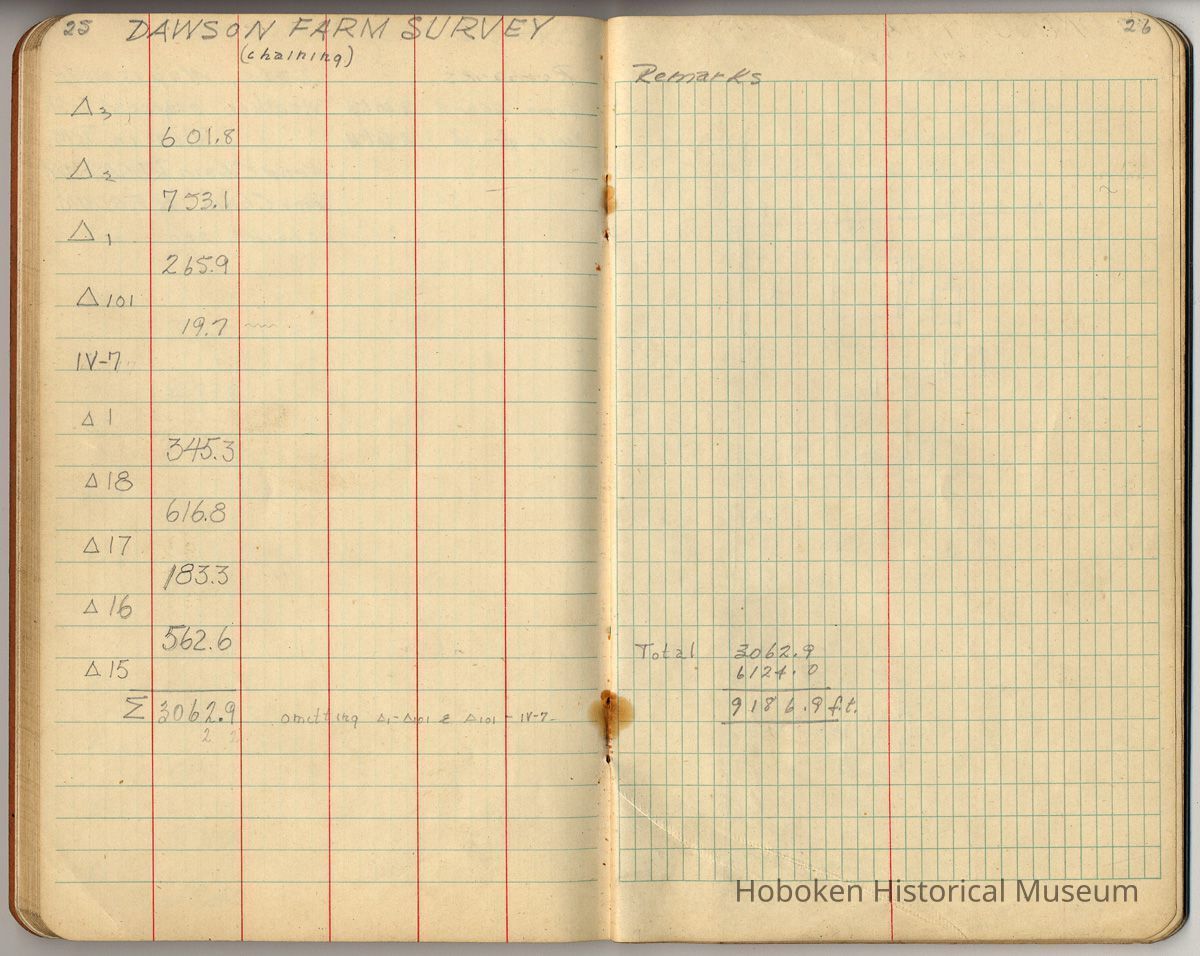 25 DAWSON FARM SURVEY
(chaining)
△3
601.8
△2
753.1
△1
265.9
△101
19.7
IV-7
△ 1
345.3
△ 18
616.8
△ 17
183.3
△ 16
562.6
△ 15
Σ 3062.9 omitting △1-△101 & △101 - IV-7
2 2
26
Remarks
Total 3062.9
6124.0
9186.9 ft.
Hoboken Historical Museum